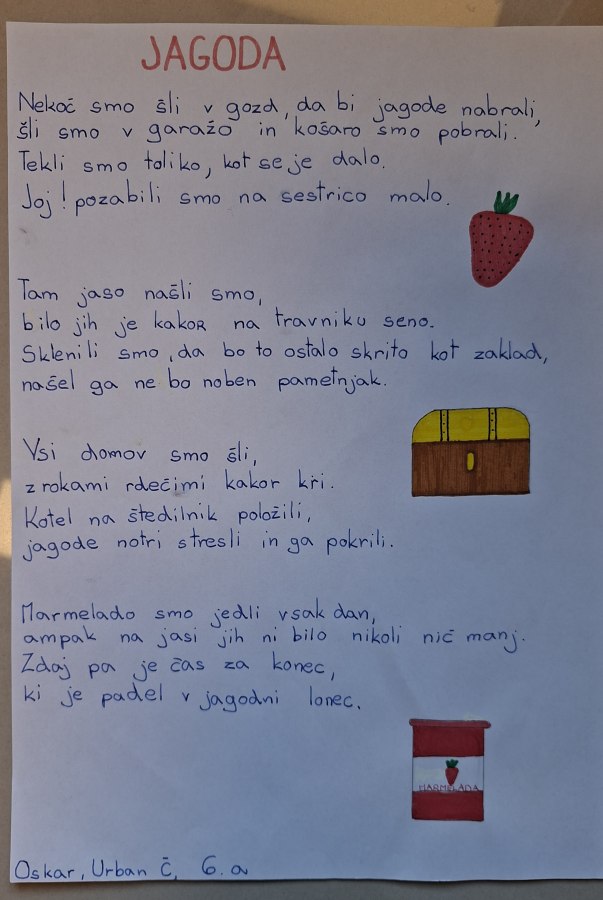 JAGODA
Nekoč smo šli v gozd, da bi jagode nabrali,
šli smo v garažo in košaro smo pobrali.
Tekli smo toliko, kot se je dalo.
Joj! pozabili smo na sestrico malo.
Tam jaso našli smo,
bilo jih je kakor na travniku seno.
Sklenili smo, da bo to ostalo skrito kot zaklad,
našel ga ne bo noben pametnjak.
Vsi domov smo šli,
z rokami rdečimi kakor kri.
Kotel na štedilnik položili,
jagode notri stresli in ga pokrili.
Marmelado smo jedli vsak dan,
ampak na jasi jih ni bilo nikoli nič manj.
Zdaj pa je čas za konec,
ki je padel v jagodni lonec.
MARMELADA
Oskar, Urban Č, 6. a